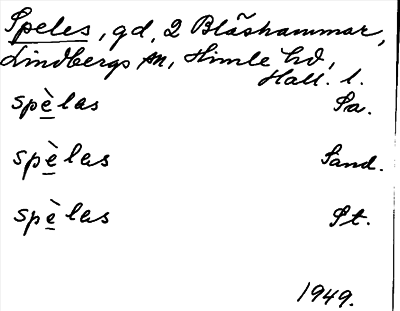 Speles, gd, 2 Blåshammar,
Lindbergs sn, Himle hd,
Hall. l.
spè̱las Sa.
spè̱las Sand.
spè̱las St.
1949.